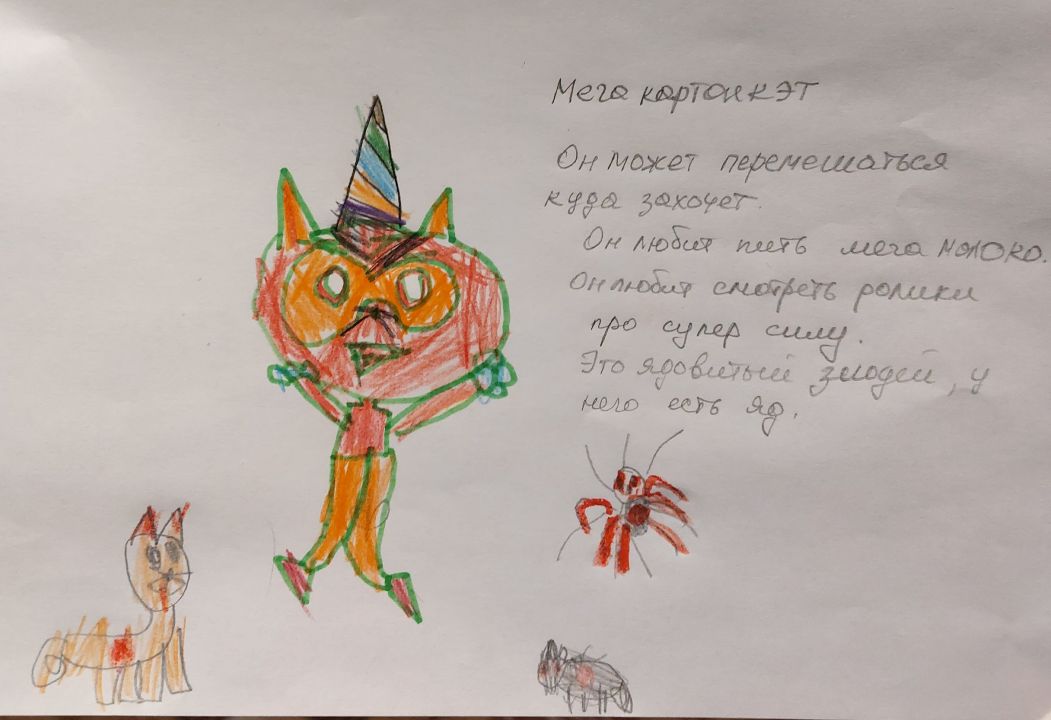 Мега картонкэт
Он может перемешаться
куда захочет.
Он любит пить мега молоко.
Он любит смотреть ролики
про супер силу.
Это ядовитый злодей, у
него есть яд.